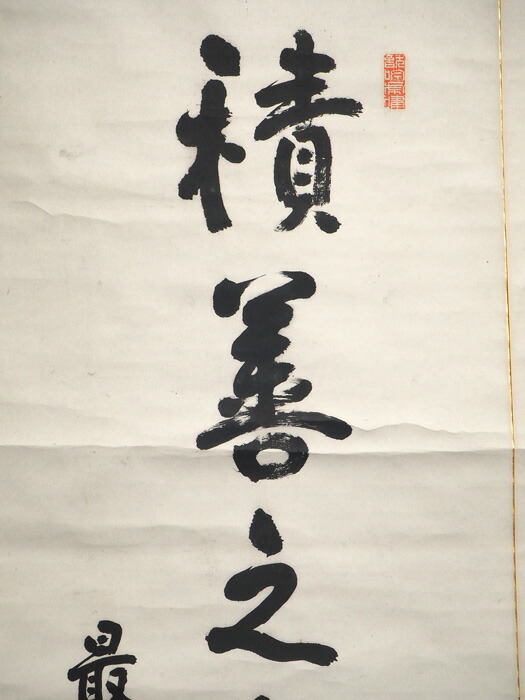 積善之
最